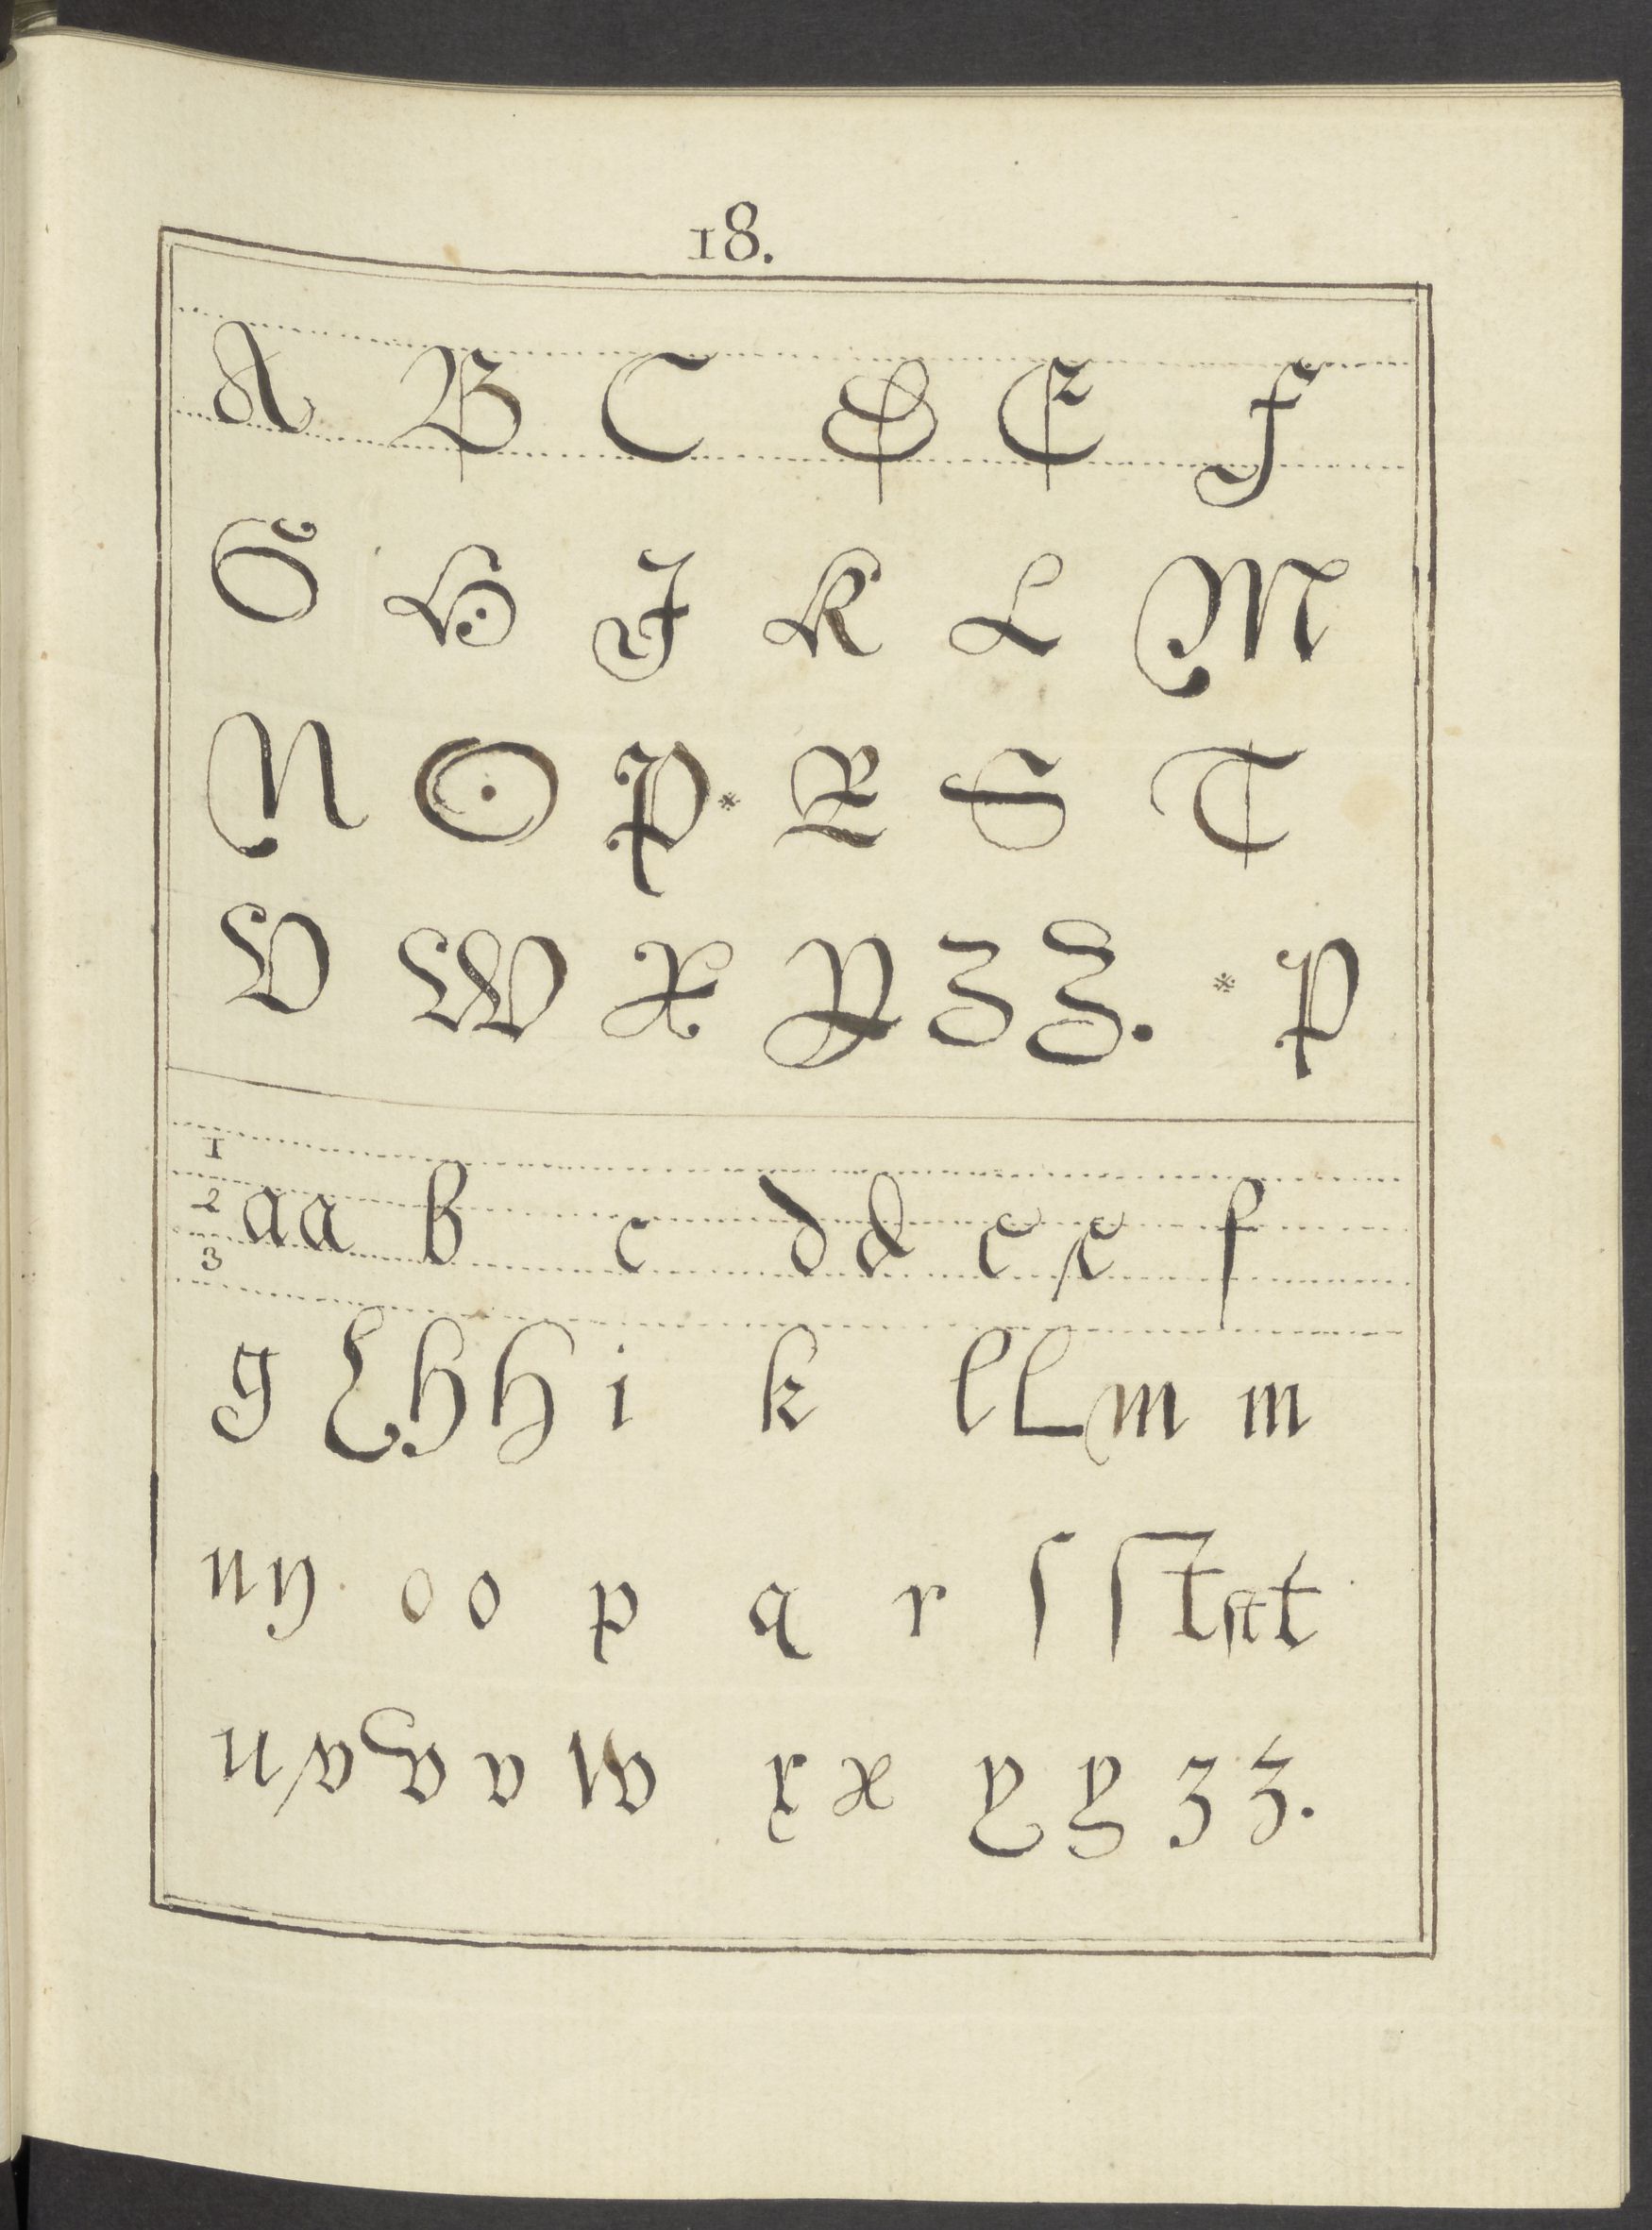 18.
A B C D E F
G H J K L M
N O P * R S T
V W X Y Z Z. * P
1
2 a a b c d d e e f
3
g g h h i k l l m m
n n o o p q r ſ ſt st t
u v v v w x x y y z z.